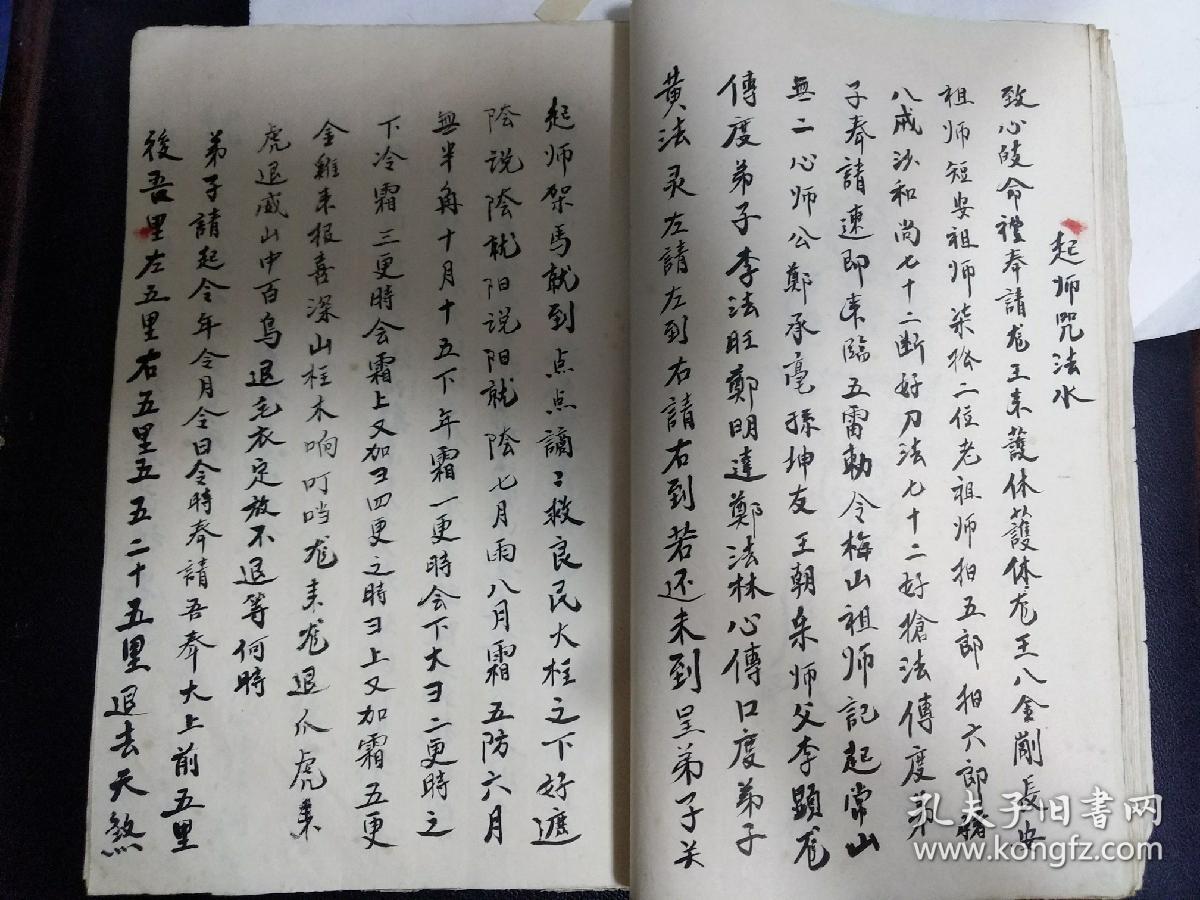 起师咒法水
致心皈命禮奉請龙王来護休護体龙王八金剛長安
祖师短安祖师柒拾二位老祖师拍五郎拍六郎猪
八戒沙和尚七十二断好刀法七十二好槍法傳度弟
子奉請速即来臨五雷勅令梅山祖师記起常山
無二心师公鄭承毫孫坤友王朝朵师父李顕龙
傳度弟子李法旺鄭明達鄭法林心傳口度弟子
黄法灵左請左到右請右到若还未到呈弟子关
起师架馬就到点点謫謫救良民大桂之下好遮
陰说陰就阳说阳就陰七月雨八月霜五防六月
無半角十月十五下年霜一更時会下大ヨ二更時之
下冷霜三更時会霜上又加ヨ四更之時ヨ上又加霜五更
金雞来报喜深山桂木响叮当龙来龙退爪虎来
虎退威山中百鸟退毛衣定放不退等何時
弟子請起令年令月令日令時奉請吾奉大上前五里
後吾里左五里右五里五五二十五里退去天煞
孔夫子旧书网
www.kongfz.com